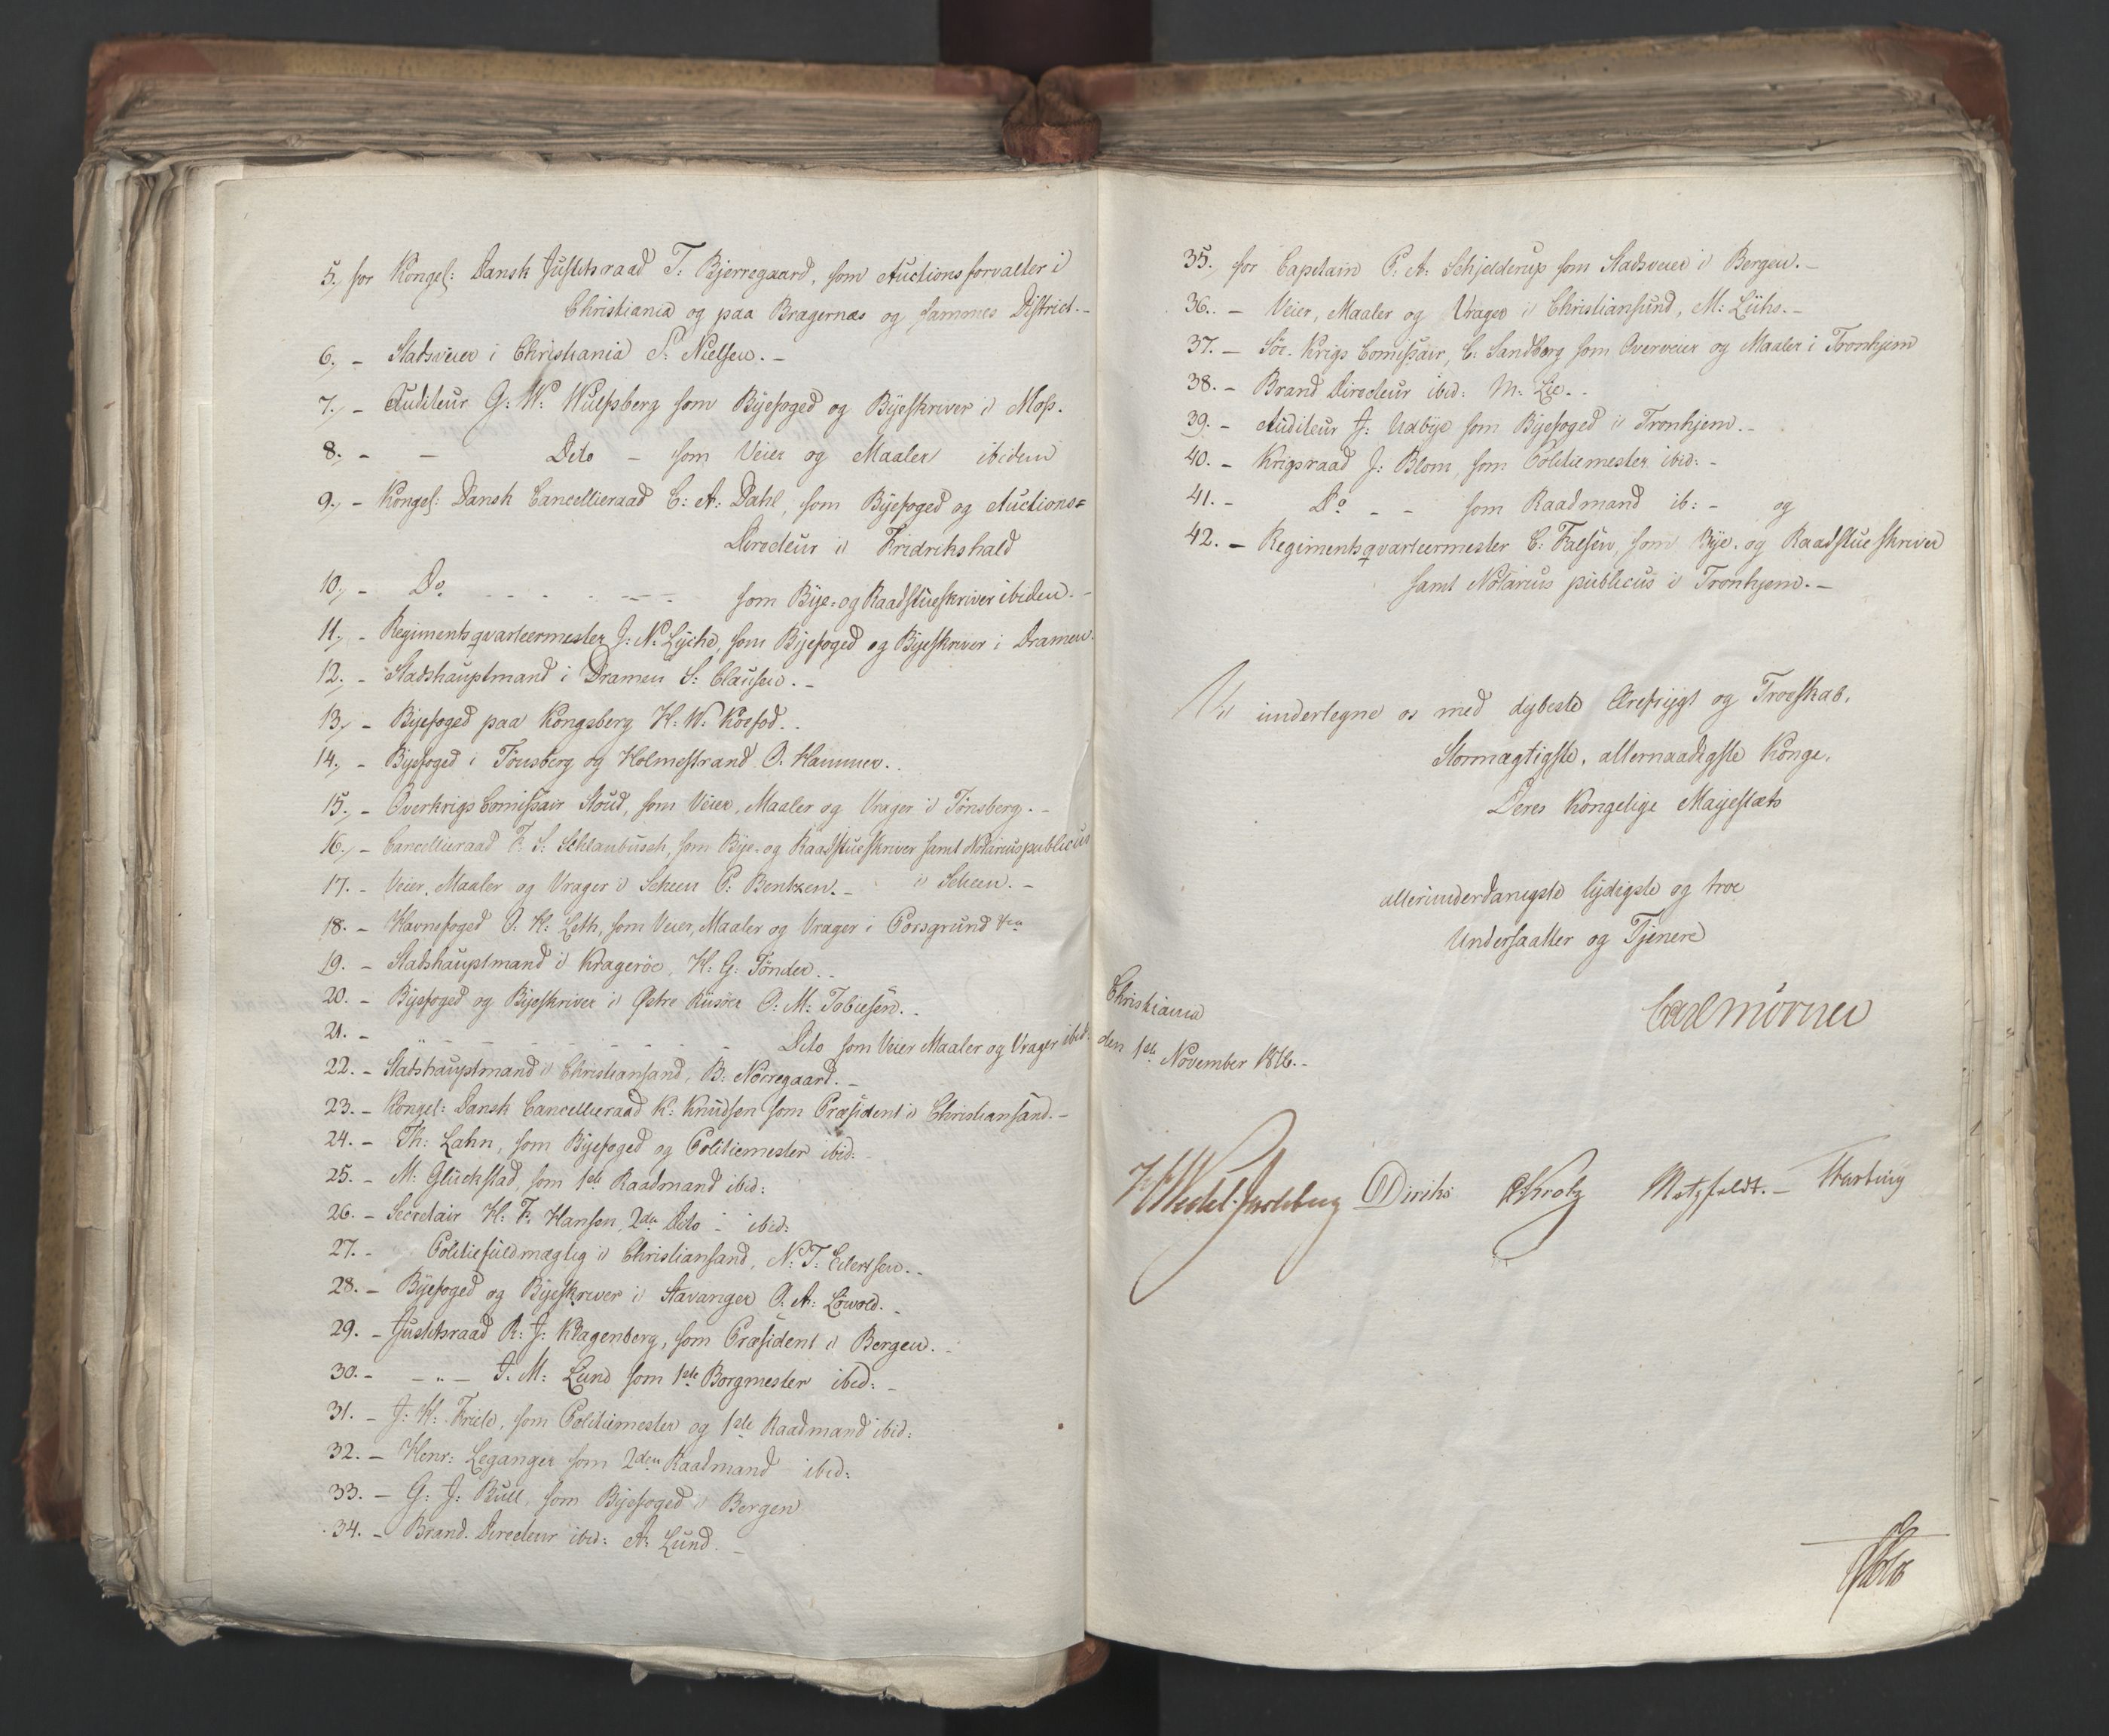 5. for Kongel: Dansk Justitsraad T: Bjerregaard, som Auctionsforvalter i
Christiania og paa Bragernæs og sammes District.-
6. - Stadsveier i Christiania S: Nielsen. -
7. - Auditeur G: W: Wulfsberg som Byefoged og Byeskriver i Moss.
8. - - Dito - som Veier og Maaler ibidem
9. - Kongel: Dansk Cancellieraad C: A: Dahl, som Byefoged og Auctions=
Directeur i Fridrikshald
10. - Do - - - - - - som Bye- og Raadstueskriver ibidem. -
11. - Regimentsqvarteermester J: N: Lyche, som Byefoged og Byeskriver i Dramen.
12. - Stadshauptmand i Dramen S: Clausen. -
13. - Byefoged paa Kongsberg H: W: Koefod. .
14. - Byefoged i Tønsberg og Holmestrand O. Hammer. .
15. - Overkrigs Comissair Stoud, som Veier, Maaler og Vrager i Tønsberg. -
16. - Cancellieraad F: S: Schlanbusch, som Bye- og Raadstueskriver samt Notarius publicus
17. - Veier, Maaler og Vrager i Scheen P: Bentzen. - i Scheen. -
18. - Havnefoged O: H: Leth, som Veier, Maaler og Vrager i Porsgrund
19. - Stadshauptmand i Kragerøe, H: G: Tønder. .
20. - Byefoged og Byeskriver i Østre Riisøer O: M: Tobiesen. .
21. - " - - - - - - - Dito som Veier Maaler og Vrager ibid:
22. - Stadshauptmand i Christiansand, B: Nørregaard. -
23. - Kongel: Dansk Cancellieraad K: Knudsen som Præsident i Christiansand. -
24. - Th: Lahn, som Byefoged og Politiemester ibid: -
25. - M: Glückstad, som 1ste Raadmand ibid:
26. - Secretair H: F: Hansen, 2den Dito - ibid:
27. - Politiefuldmægtig i Christiansand, N: T: Eilertsen. -
28. - Byefoged og Byeskriver i Stavanger O: A: Løwold. -
29. - Justitsraad R: J: Kragenberg, som Præsident i Bergen. -
30. - - " - J. M: Lund som 1ste Borgmester ibid: -
31. - J: H: Friele, som Politiemester og 1ste Raadmand ibid:
32. - Henr: Leganger som 2den Raadmand ibid:
33. - G: J: Bull, som Byefoged i Bergen
34. - Brand. Directeur ibid: A: Lund. -
35. for Capitain P: A: Schjelderup som Stadsveier i Bergen. -
36. - Veier, Maaler og Vrager i Christiansund, M: Lühs. -
37. - Krigs Comissair, C: Sandborg som Overveier og Maaler i Tronhjem
38. - Brand Directeur ibid: M: Lie. .
39. - Auditeur J: Udbye som Byefoged i Tronhjem. -
40. - Krigsraad J: Blom, som Politiemester ibid: -
41. - Do - - som Raadmand ib: - og
42. - Regimentsqvarteermester C: Falsen, som Bye- og Raadstueskriver
samt Notarius publicus i Tronhjem. -
Vi underlegne os med dybeste Ærefrygt og Troeskab,
Stormægtigste, allernaadigste Konge,
Deres Kongelige Majestæts
allerunderdanigste lydigste og troe
Undersaatter og Tjenere
Carl Mörner
Christiania
den 1ste November 1816. -
H Wedel-Jarlsberg Diriks Krog Motzfeldt. - Harbing